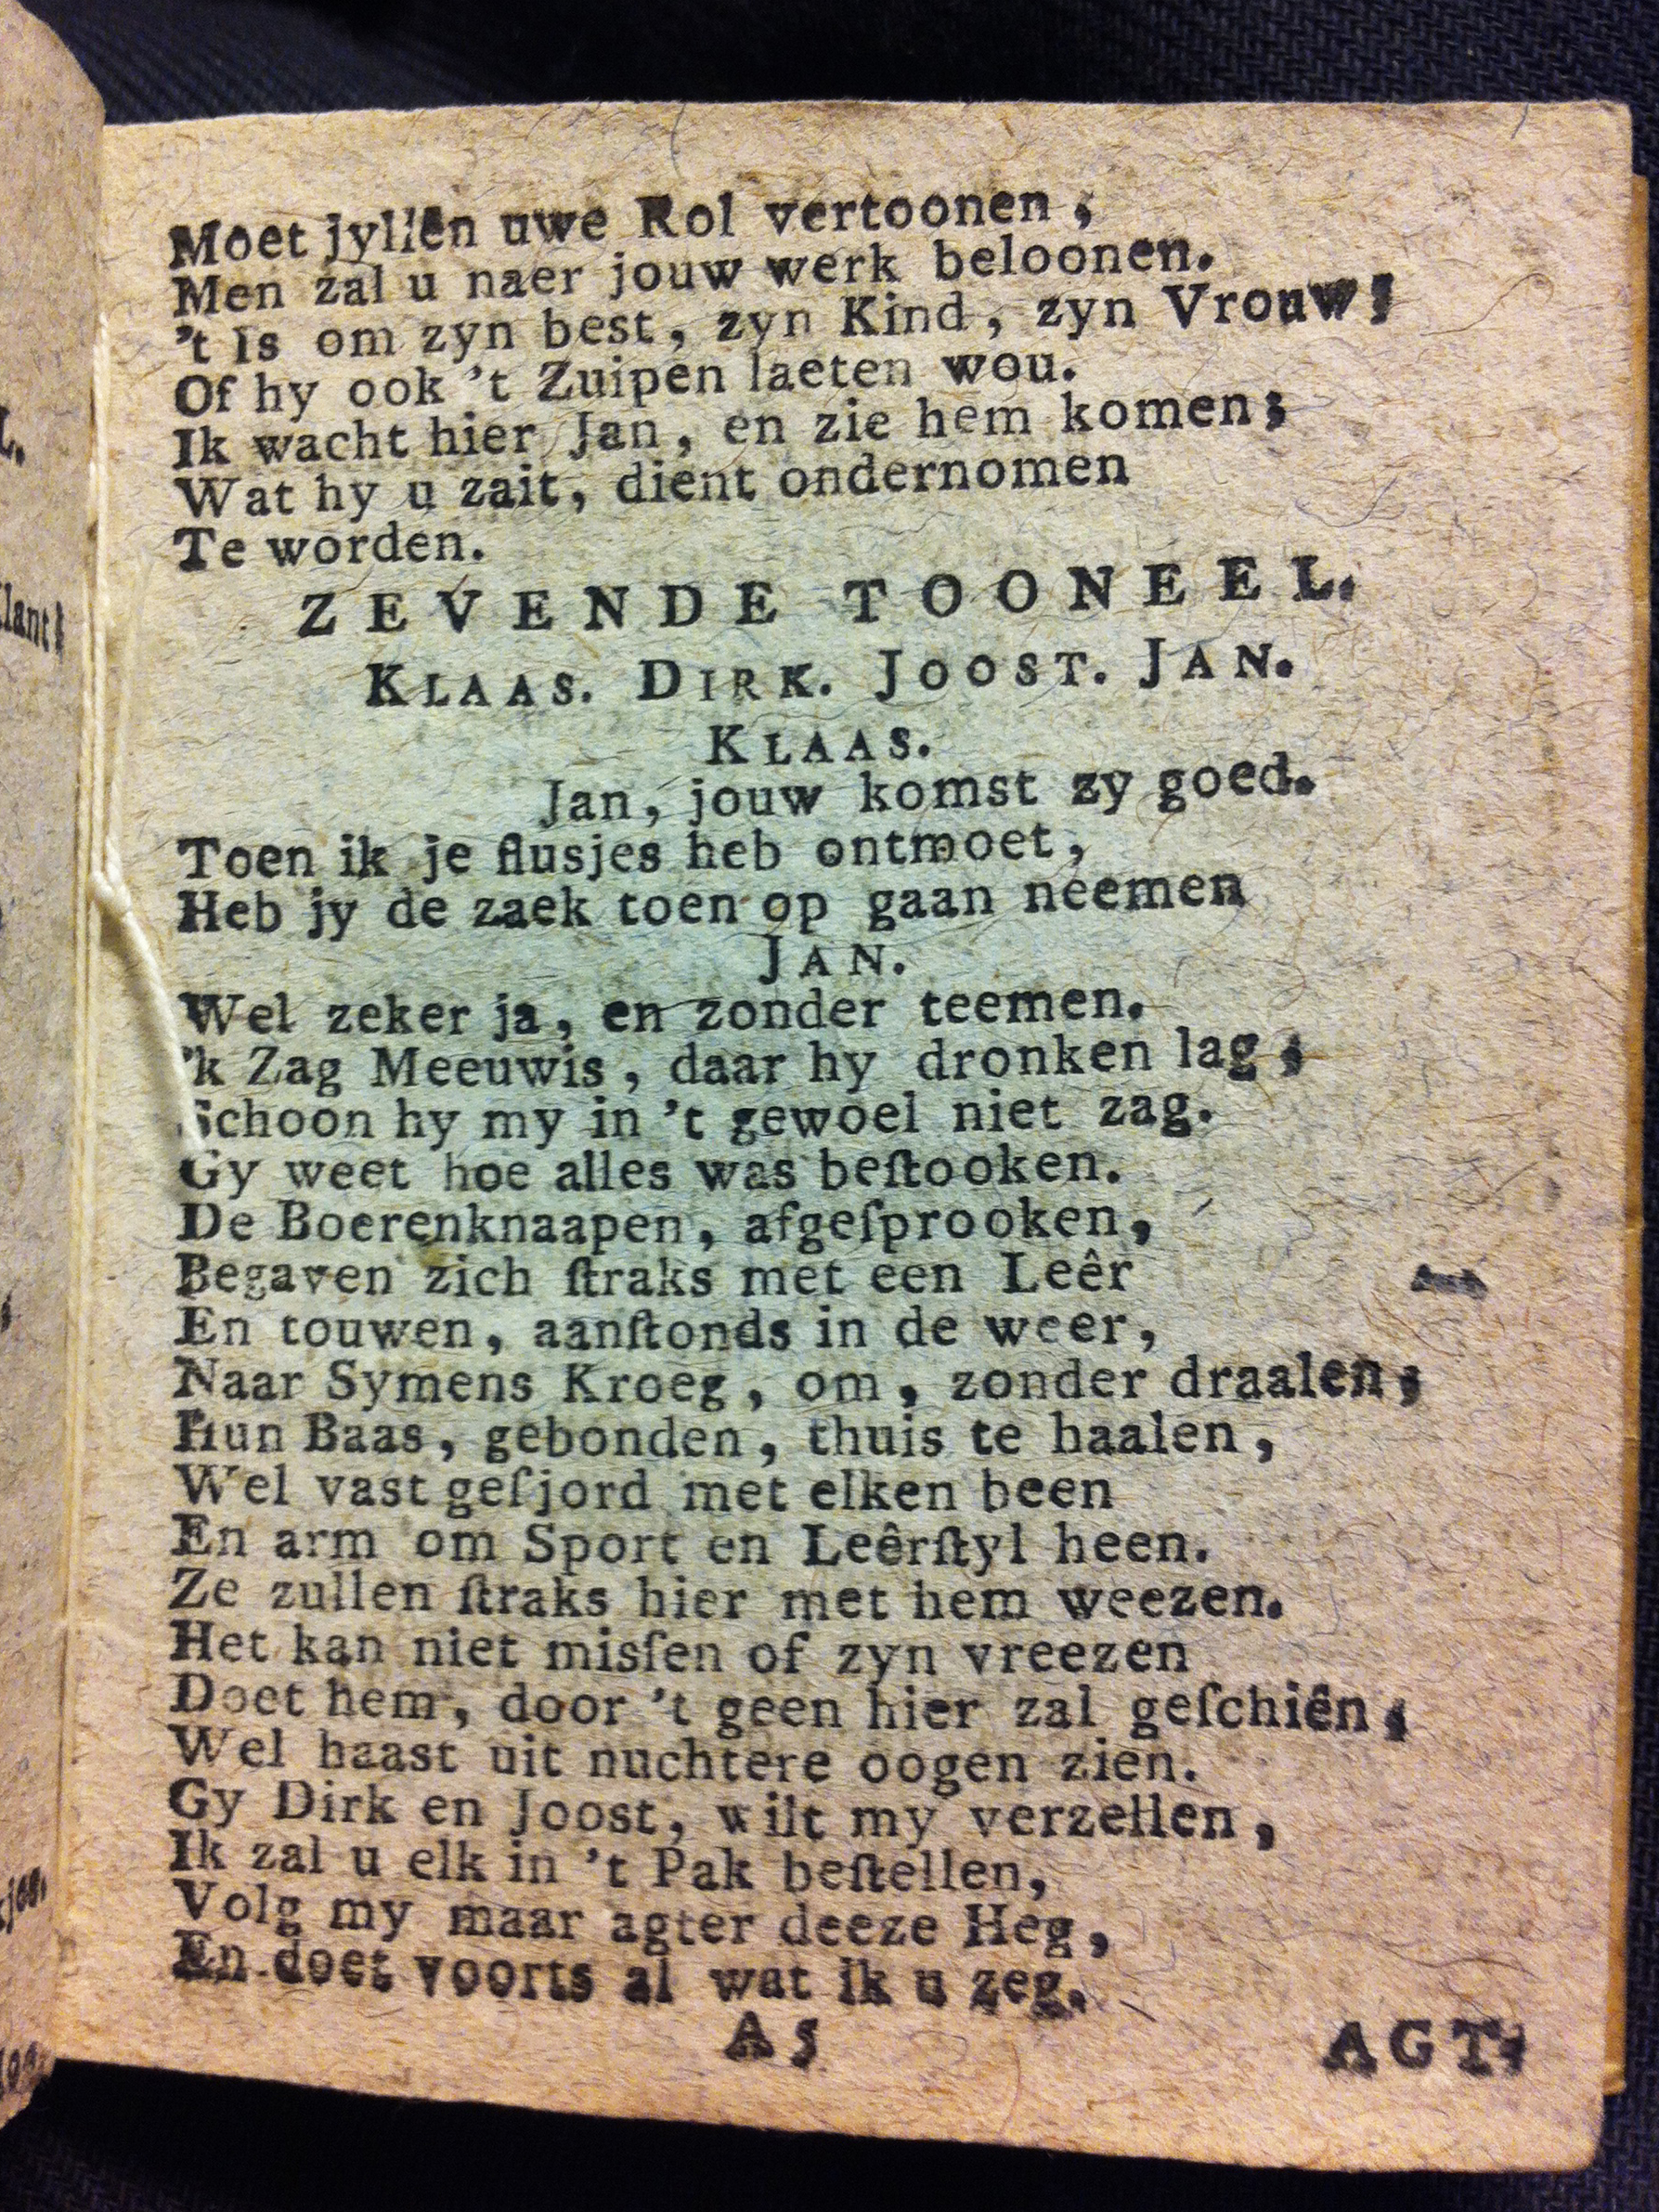 Moet jyliên uwe Rol vertoonen,
Men zal u naer jouw werk beloonen.
't Is om zyn best, zyn Kind, zyn Vrouw;
Of hy ook 't Zuipen laeten wou.
Ik wacht hier Jan, en zie hem komen;
Wat hy u zait, dient ondernomen
Te worden.
ZEVENDE TOONEEL.
KLAAS. DIRK. JOOST. JAN.
KLAAS.
Jan, jouw komst zy goed.
Toen ik je flusjes heb ontmoet,
Heb jy de zaek toen op gaan neemen
JAN.
Wel zeker ja, en zonder teemen.
'k Zag Meeuwis, daar hy dronken lag,
Schoon hy my in 't gewoel niet zag.
Gy weet hoe alles was beſtooken.
De Boerenknaapen, afgeſprooken,
Begaven zich ſtraks met een Leêr
En touwen, aanſtonds in de weer,
Naar Symens Kroeg, om, zonder draalen,
Hun Baas, gebonden, thuis te haalen,
Wel vast geſjord met elken been
En arm om Sport en Leêrſtyl heen.
Ze zullen ſtraks hier met hem weezen.
Het kan niet misſen of zyn vreezen
Doet hem, door 't geen hier zal geſchiên,
Wel haast uit nuchtere oogen zien.
Gy Dirk en Joost, wilt my verzellen,
Ik zal u elk in 't Pak beſtellen,
Volg my maar agter deeze Heg,
En doet voorts al wat ik u zeg.
A5 AGT-